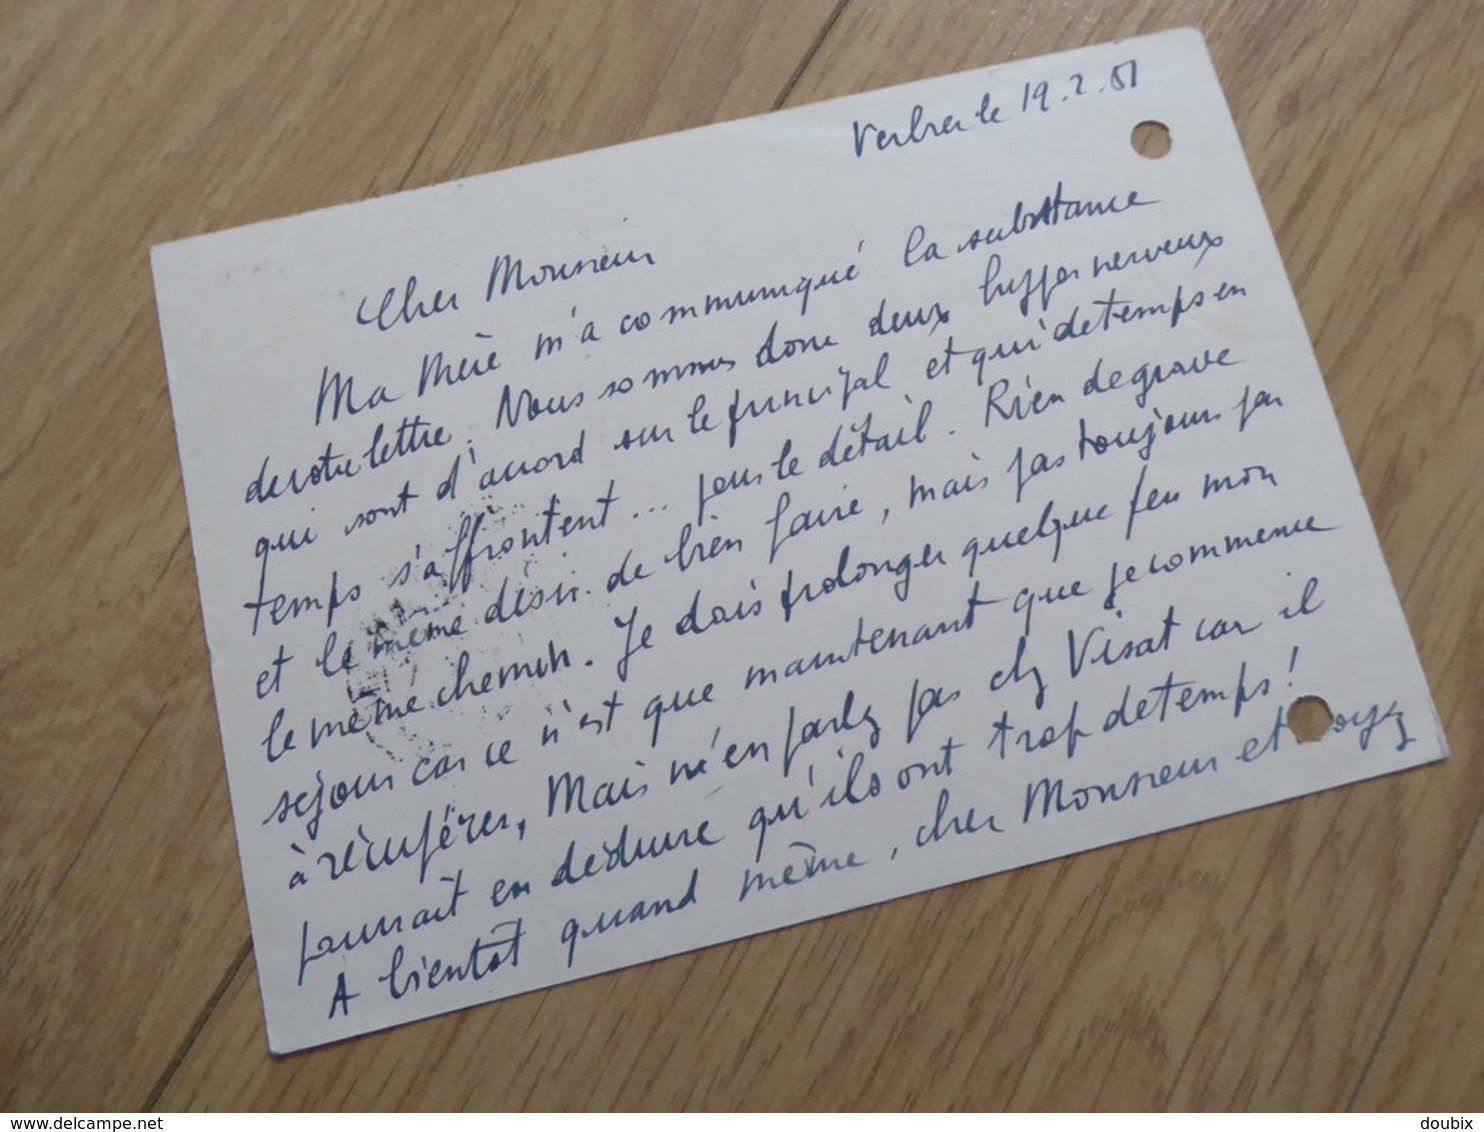 Verbier le 19.2.51
Cher Monsieur
Ma Mère m'a communiqué la substance
de votre lettre. Nous sommes donc deux hyppernerveux
qui sont d'accord sur le principal et qui de temps en
temps s'affrontent... pour le détail. Rien de grave
et le même désir de bien faire, mais pas toujours par
le même chemin. Je dois prolonger quelque peu mon
séjour car ce n'est que maintenant que je commence
à récupérer, Mais n'en parlez pas chez Visat car il
pourrait en déduire qu'ils ont trop de temps!
A bientôt quand même, cher Monsieur et
delcampe.net
doubix